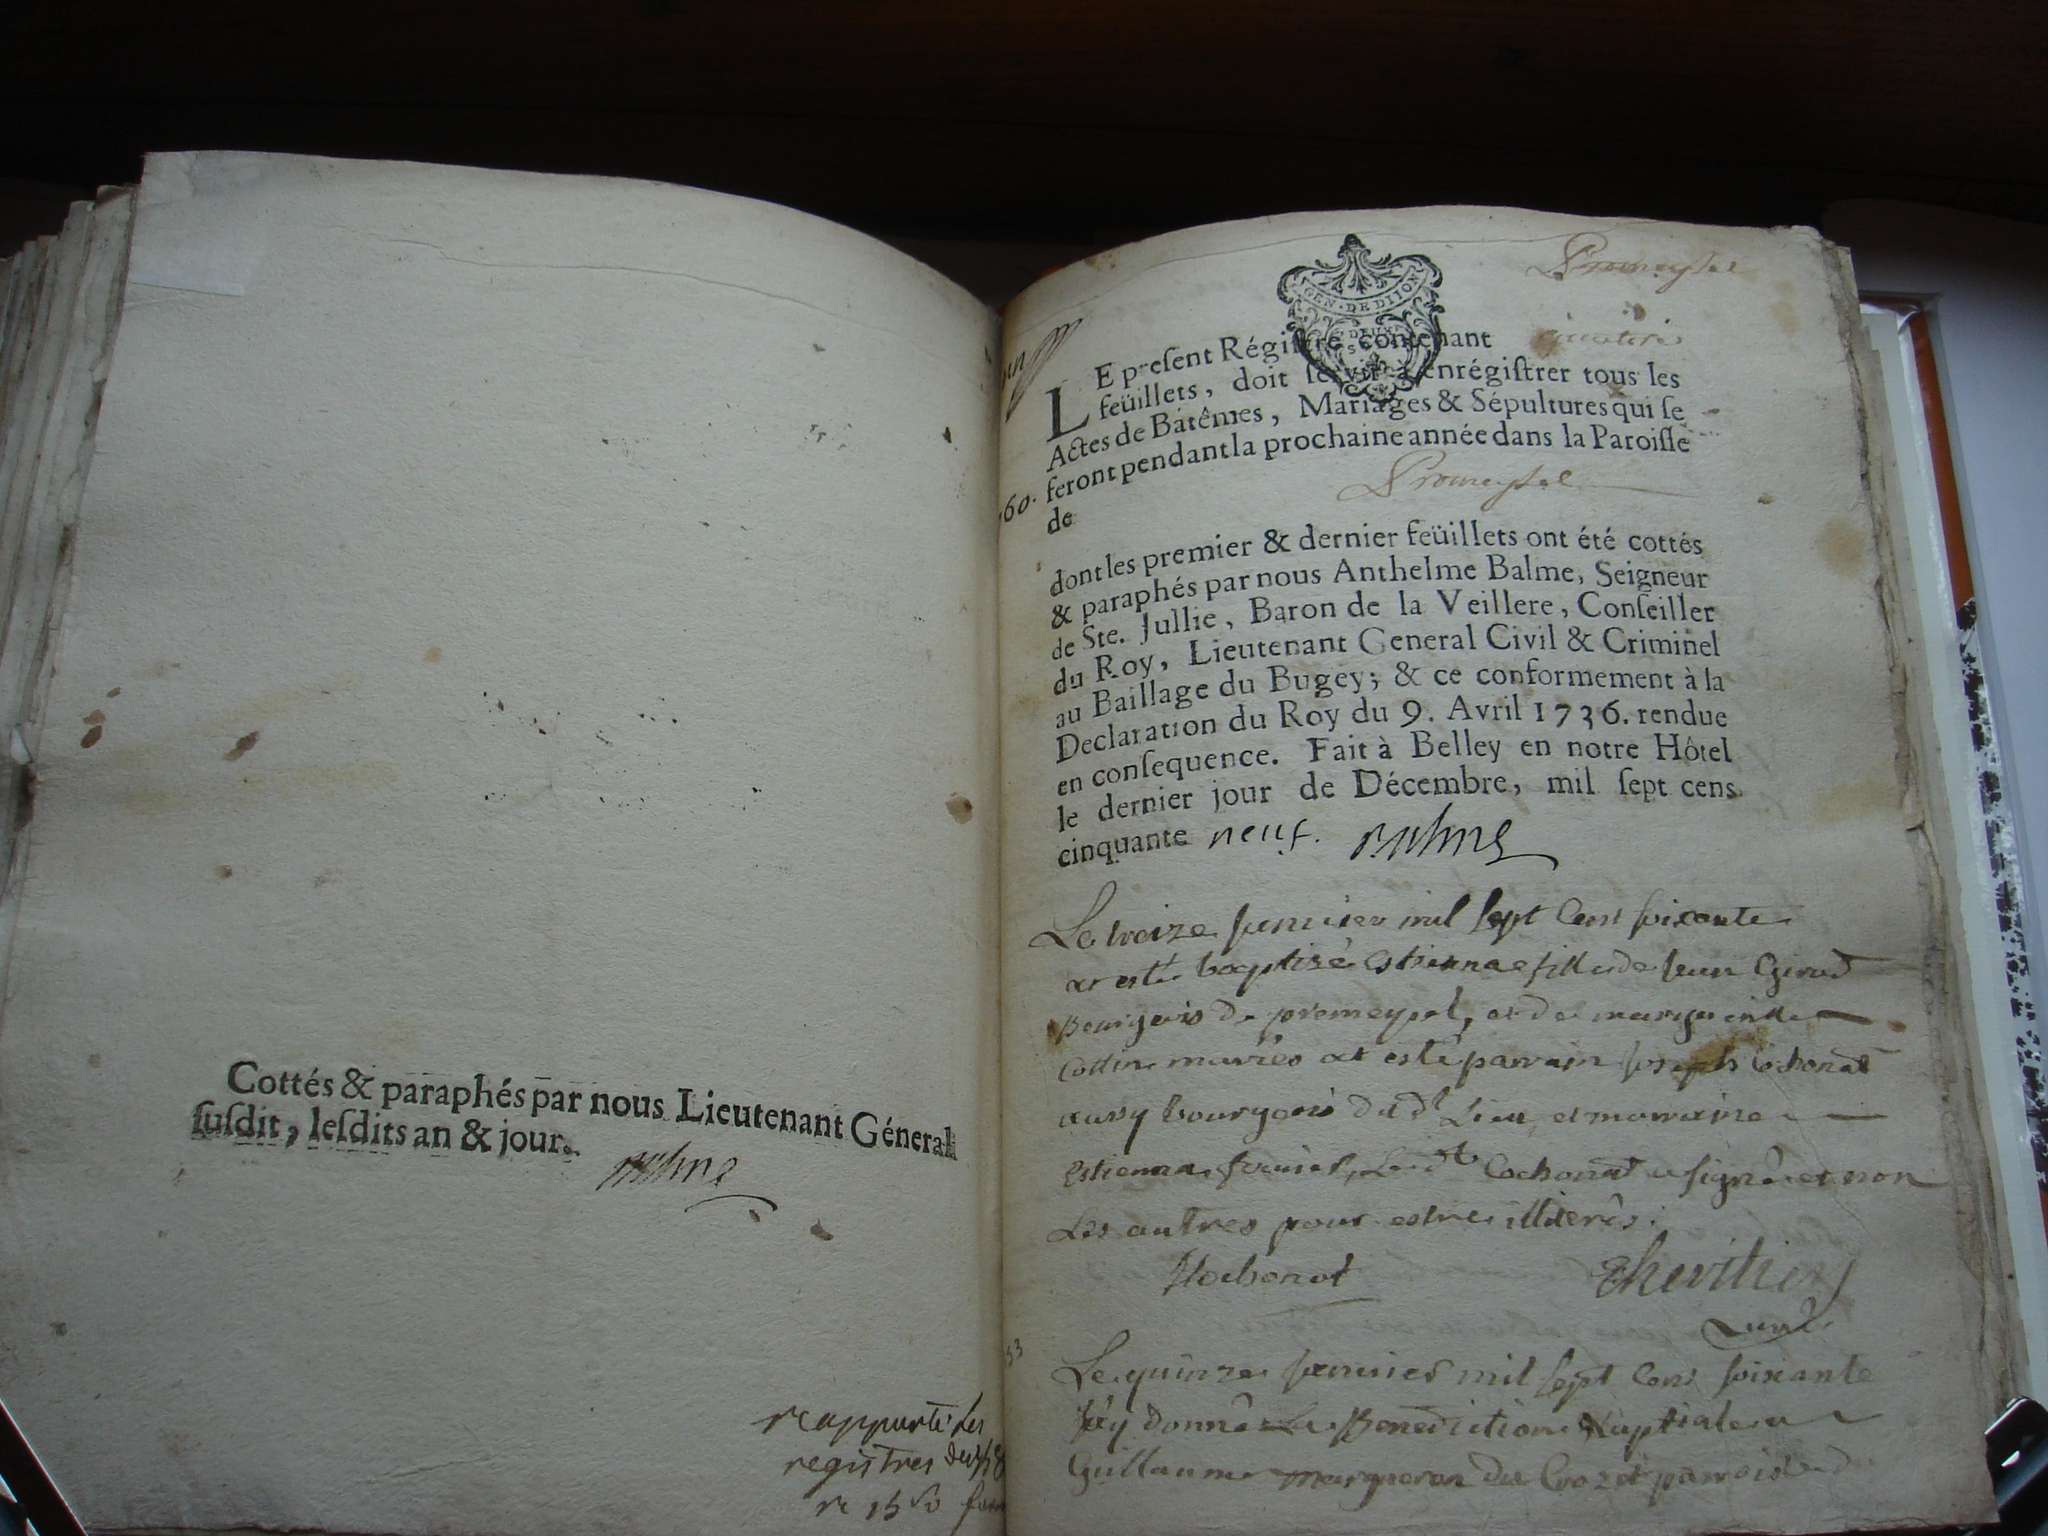 Cottés & paraphés par nous Lieutenant Géneral
ſuſdit, leſdits an & jour.
Balme
rapporté les
registres
GEN. DE DIJON
DEUX S
Promeysel
LE preſent Régiſtre contenant
feüillets, doit ſervir à enrégiſtrer tous les
Actes de Batêmes, Mariages & Sépultures qui ſe
feront pendant la prochaine année dans la Paroiſſe
60.
de
Promeysel
dont les premier & dernier feüillets ont été cottés
& paraphés par nous Anthelme Balme, Seigneur
de Ste. Jullie, Baron de la Veillere, Conſeiller
du Roy, Lieutenant General Civil & Criminel
au Baillage du Bugey; & ce conformement à la
Declaration du Roy du 9. Avril 1736. rendue
en conſequence. Fait à Belley en notre Hôtel
le dernier jour de Décembre, mil ſept cens
cinquante neuf. Balme
Le treize janvier mil sept cens soixante
at esté baptisé Estienna fille de Jean Girod
Bourgeois de premeysel, et de margueritte
Cottin mariés at esté parrain joseph Cochonat
aussy bourgeois du dt Lieu et marraine
Estienna Le dt Cochonat a signé et non
Les autres pour estre illiterés.
Cochonat
Curé
53
Le quinze janvier mil sept cens soixante
j'ay donné La Benediction Nuptiale a
Guillaume du Crozet parroisse d